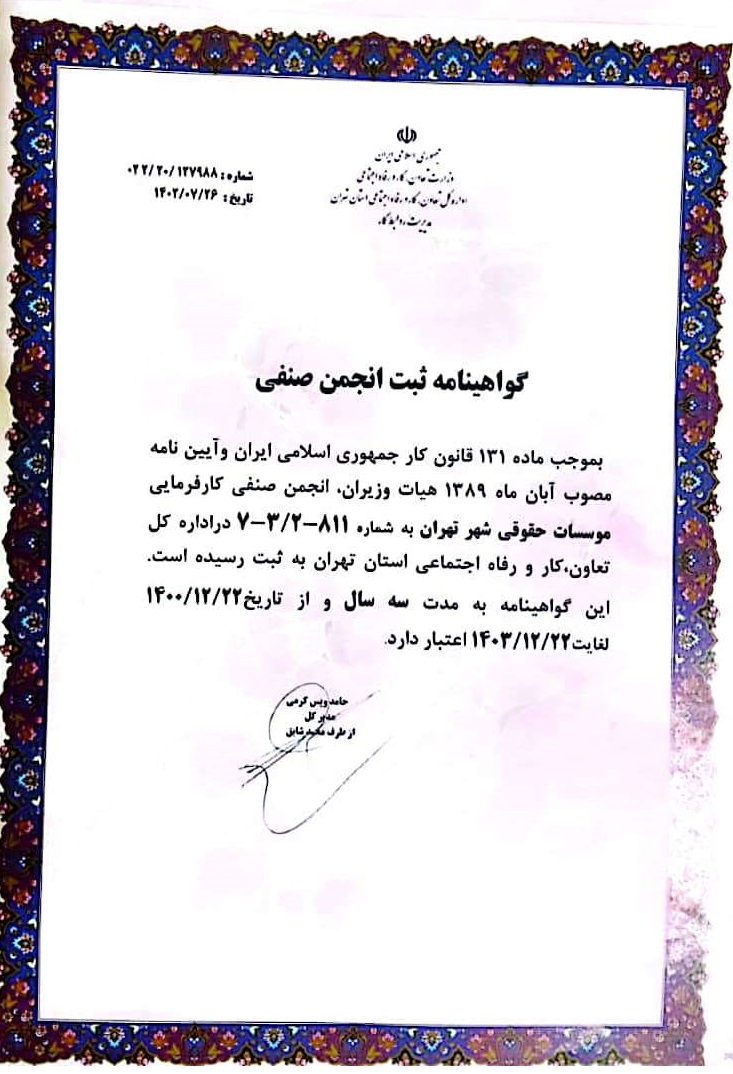 جمهوری اسلامی ایران
وزارت تعاون، کار و رفاه اجتماعی
اداره کل تعاون، کار و رفاه اجتماعی استان تهران
مدیریت روابط کار
شماره : ۰۲۲/۲۰/۱۲۷۹۸۸
تاریخ : ۱۴۰۲/۰۷/۲۶
گواهینامه ثبت انجمن صنفی
بموجب ماده ۱۳۱ قانون کار جمهوری اسلامی ایران وآیین نامه
مصوب آبان ماه ۱۳۸۹ هیات وزیران، انجمن صنفی کارفرمایی
موسسات حقوقی شهر تهران به شماره ۸۱۱-۳/۲-۷ دراداره کل
تعاون،کار و رفاه اجتماعی استان تهران به ثبت رسیده است.
این گواهینامه به مدت سه سال و از تاریخ۱۴۰۰/۱۲/۲۲
لغایت۱۴۰۳/۱۲/۲۲ اعتبار دارد.
حامد ویس کرمی
مدیر کل
از طرف محمد شایق